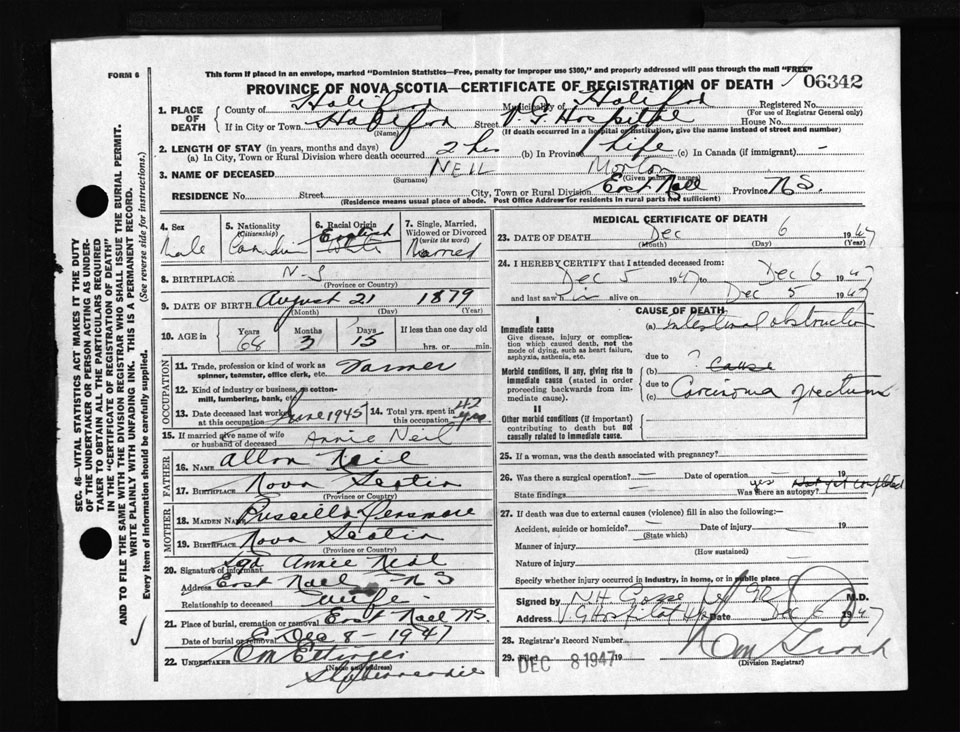 FORM 6
This form if placed in an envelope, marked "Dominion Statistics—Free, penalty for improper use $300," and properly addressed will pass through the mail "FREE"
PROVINCE OF NOVA SCOTIA—CERTIFICATE OF REGISTRATION OF DEATH 06342
1. PLACE OF DEATH County of Halifax Municipality of Halifax Registered No.
(For use of Registrar General only)
If in City or Town Halifax Street V. G. Hospital House No.
(Name) (If death occurred in a hospital or institution, give the name instead of street and number)
2. LENGTH OF STAY (in years, months and days)
(a) In City, Town or Rural Division where death occurred 2 hrs (b) In Province Life (c) In Canada (if immigrant) -
3. NAME OF DECEASED NEIL Morton
(Surname) (Given name or names)
RESIDENCE No. Street City, Town or Rural Division East Noel Province N S.
(Residence means usual place of abode. Post Office Address for residents in rural parts not sufficient)
4. Sex Male
5. Nationality (Citizenship) Canadian
6. Racial Origin English
7. Single, Married, Widowed or Divorced (write the word) Married
8. BIRTHPLACE N-S
(Province or Country)
9. DATE OF BIRTH August 21 1879
(Month) (Day) (Year)
10. AGE in Years 68 Months 3 Days 15 If less than one day old hrs. or min.
OCCUPATION
11. Trade, profession or kind of work as spinner, teamster, office clerk, etc. Farmer
12. Kind of industry or business, as cotton-mill, lumbering, bank, etc.
13. Date deceased last worked at this occupation June 1945 14. Total yrs. spent in this occupation 42 yrs
15. If married give name of wife or husband of deceased Annie Neil
FATHER
16. NAME Allon Neil
17. BIRTHPLACE Nova Scotia
(Province or Country)
MOTHER
18. MAIDEN NAME Priscilla Densmore
19. BIRTHPLACE Nova Scotia
(Province or Country)
20. Signature of informant Sgd Annie Neil
Address East Noel - N S
Relationship to deceased Wife
21. Place of burial, cremation or removal East Noel N S.
Date of burial or removal Dec 8 - 1947
22. UNDERTAKER E M Ettinger
(Name and address)
Shubenacadie
MEDICAL CERTIFICATE OF DEATH
23. DATE OF DEATH Dec 6 1947
(Month) (Day) (Year)
24. I HEREBY CERTIFY that I attended deceased from:
Dec 5 1947 to Dec 6 1947
and last saw him alive on Dec 5 1947
CAUSE OF DEATH
I
Immediate cause
Give disease, injury or complication which caused death, not the mode of dying, such as heart failure, asphyxia, asthenia, etc.
(a) Intestinal obstruction
due to
Morbid conditions, if any, giving rise to immediate cause (stated in order proceeding backwards from immediate cause).
(b) ? Cause
due to
(c) Carcinoma of rectum
II
Other morbid conditions (if important) contributing to death but not causally related to immediate cause.
25. If a woman, was the death associated with pregnancy?
26. Was there a surgical operation? - Date of operation - 19
State findings - Was there an autopsy? yes Not yet completed
27. If death was due to external causes (violence) fill in also the following:—
Accident, suicide or homicide? - Date of injury - 19
(State which)
Manner of injury
(How sustained)
Nature of injury
Specify whether injury occurred in industry, in home, or in public place
Signed by N. H. Gosse M.D.
Address V G Hospital Hfx Date Dec 6 1947
28. Registrar's Record Number
29. Filed DEC 8 1947 19
(Division Registrar)
SEC. 46—VITAL STATISTICS ACT MAKES IT THE DUTY OF THE UNDERTAKER OR PERSON ACTING AS UNDERTAKER TO OBTAIN ALL THE PARTICULARS REQUIRED IN THE "CERTIFICATE OF REGISTRATION OF DEATH" AND TO FILE THE SAME WITH THE DIVISION REGISTRAR WHO SHALL ISSUE THE BURIAL PERMIT.
WRITE PLAINLY WITH UNFADING INK. THIS IS A PERMANENT RECORD.
Every item of information should be carefully supplied. (See reverse side for instructions.)